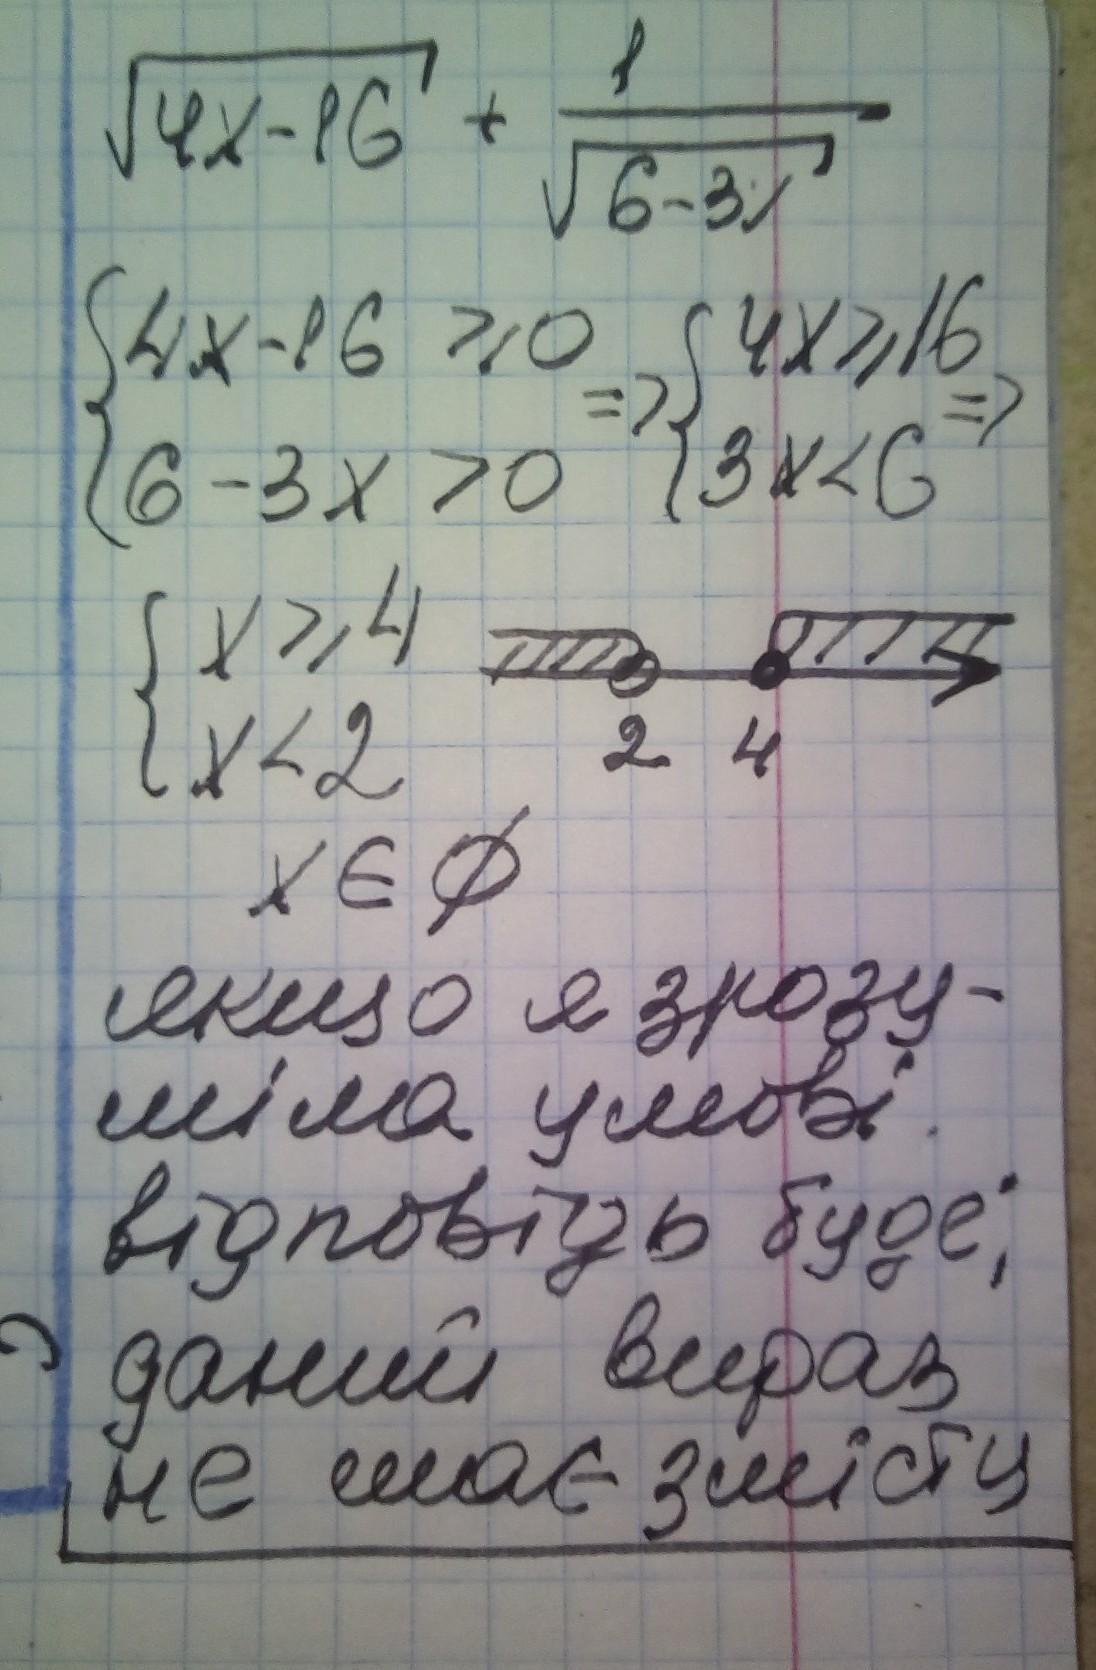 √4x-16 + 1/√6-3x
{4x-16 ⩾ 0 => {4x⩾16 =>
{6-3x>0 {3x<6
{x⩾4
{x<2 2 4
x∈∅
якщо я зрозу-
міла умові
відповідь буде;
даний вираз
не має змісту